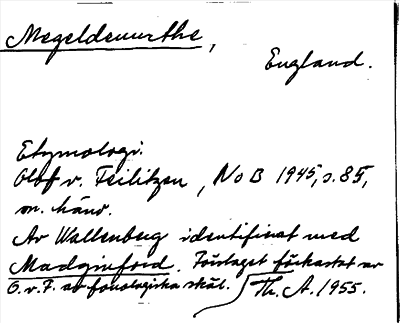 Megeldewurthe,
England.
Etymologi.
Olof v. Feilitzen, NoB 1945, s. 85,
m. hänv.
Av Wallenberg identifierat med
Madginford. Förslaget förkastat av
O. v. F. av fonologiska skäl.
Th. A. 1955.